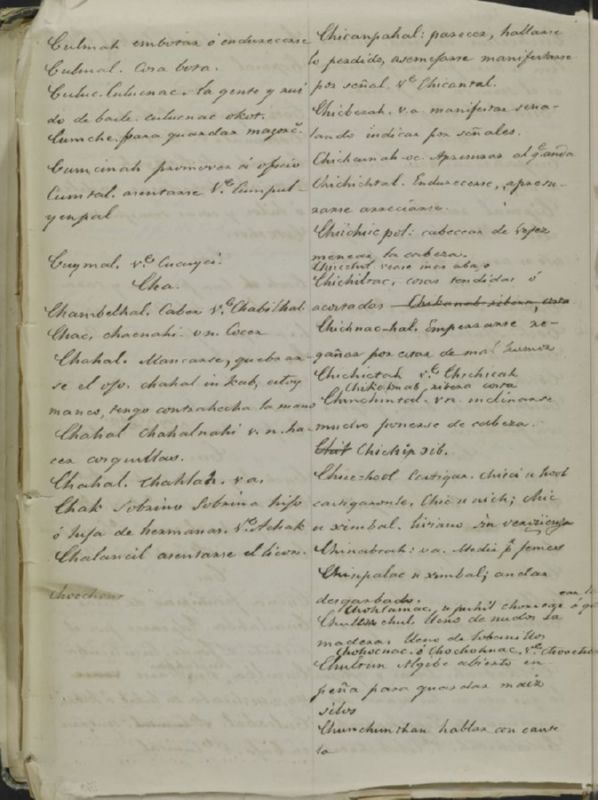 Culmah embotar ó endurecerse
Culmal. Cosa bota.
Culuc. Culucnac. la gente y rui
do de baile. culucnac okot.
Cumche. para guardar
Cumcinah promover á oficio
Cumtal. asentarse Vᵉ Cumpul-
yenpal
Cuymal. vᵉ Cucuyci.
Cha.
Chambelhal. Caber vᵉ Chabilhal
Chac, chacnahi v.n. Cocer
Chahal. Mancarse, quebrar-
se el oso. chahal in kab, estoy
manco, tengo contrahecha la mano
Chahal Chahalnahi v. n. ha-
cer cosquillas.
Chahal. Chahlah. v.a.
Chak Sobrino Sobrina hijo
ó hija de hermanas. Vᵉ Achak
Chalancil asentarse el licor.
Chicanpahal: parecer, hallarse
lo perdido, asemejarse manifestarse
por señal. vᵉ Chicantal.
Chicbezah. v.a manifestar seña-
lando indicar por señales.
Apresurar al qᵉ anda
Chichichtal. Endurecerse, apresu-
rarse arreciarse.
Chichicpol: cabecear de vejez
menear la cabeza.
vease mas abajo
Chichiltac, cosas tendidas ó
acostadas
Chichnac-hal. Emperrarse re-
gañar por estar de mal humor
Chichictah vᵉ Chichicah
ribera costa
Chinchintal. v.n. inclinarse
mucho ponerse de cabeza.
Chichipxib.
Chicchool Castigar. chicci u hool
castigaronle. Chic u nich; chic
u ximbal. liviano sin verguenza
Chinabtah: va. Medir pʳ jemes
Chinpalac u ximbal; andar
desgarbado.
chul. lleno de nudos la
madera. lleno de tobanillos
Chochocnac. ó Chochohnac, vᵉ
Chultun Algibe abierto en
peña para guardar maiz
silos
Chunchunthan hablar con caute
la